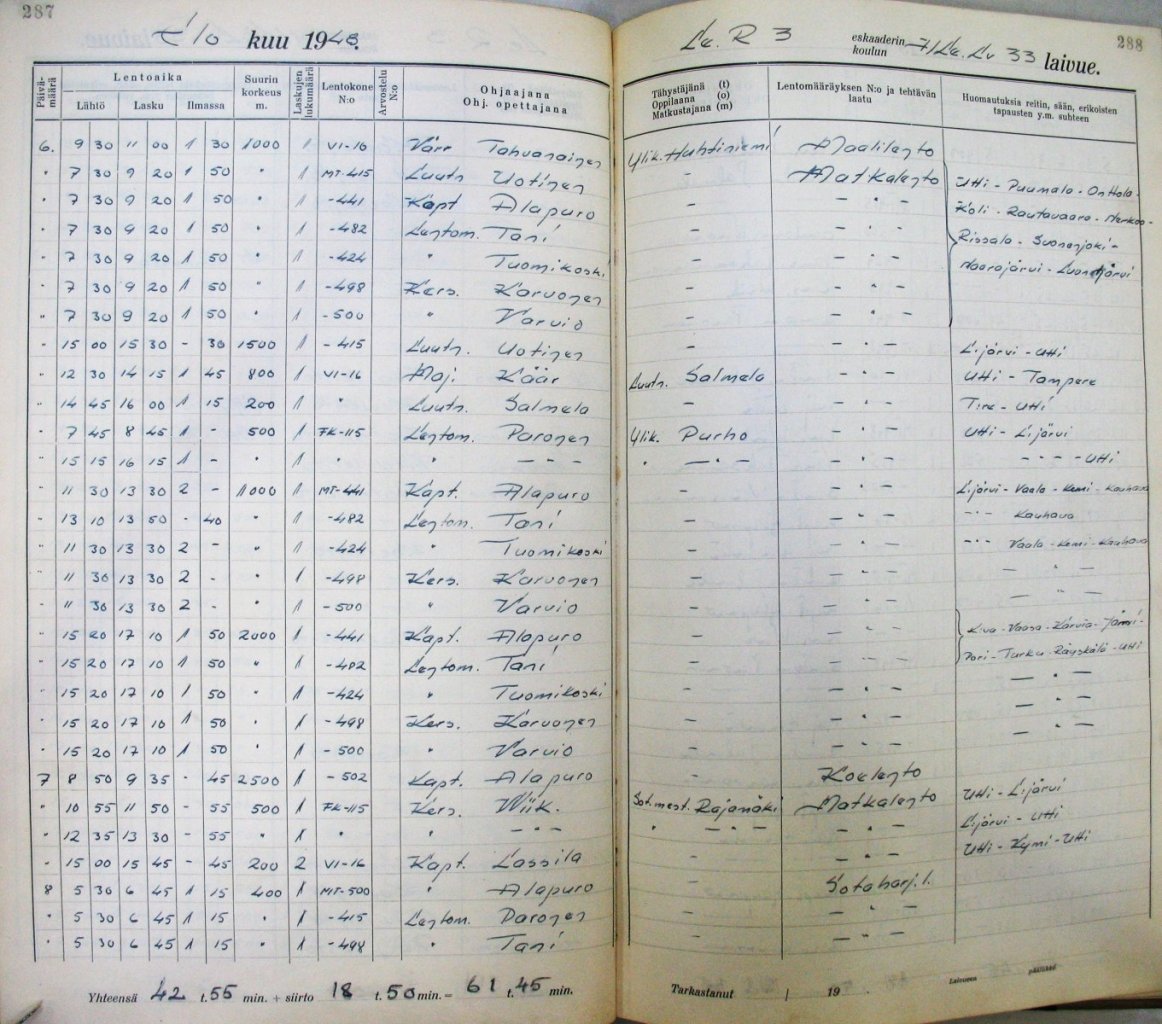 287
Elo kuu 1948.
Päivämäärä Lentoaika Lähtö Lasku Ilmassa Suurin korkeus m. Laskujen lukumäärä Lentokone N:o Arvostelu N:o Ohjaajana Ohj. opettajana
6. 9 30 11 00 1 30 1000 1 VI-16 Väär Tahvanainen
" 7 30 9 20 1 50 " 1 MT-415 Luutn Uotinen
" 7 30 9 20 1 50 " 1 -441 Kapt Alapuro
" 7 30 9 20 1 50 " 1 -482 Lentom. Tani
" 7 30 9 20 1 50 " 1 -424 " Tuomikoski
" 7 30 9 20 1 50 " 1 -498 Kers. Karvonen
" 7 30 9 20 1 50 " 1 -500 " Varvio
" 15 00 15 30 - 30 1500 1 -415 Luutn. Uotinen
" 12 30 14 15 1 45 800 1 VI-16 Maj. Käär
" 14 45 16 00 1 15 200 1 " Luutn. Salmela
" 7 45 8 45 1 - 500 1 FK-115 Lentom. Paronen
" 15 15 16 15 1 - " 1 " " — " —
" 11 30 13 30 2 - 1000 1 MT-441 Kapt. Alapuro
" 13 10 13 50 - 40 " 1 -482 Lentom. Tani
" 11 30 13 30 2 - " 1 -424 " Tuomikoski
" 11 30 13 30 2 - " 1 -498 Kers. Karvonen
" 11 30 13 30 2 - " 1 -500 " Varvio
" 15 20 17 10 1 50 2000 1 -441 Kapt. Alapuro
" 15 20 17 10 1 50 " 1 -482 Lentom. Tani
" 15 20 17 10 1 50 " 1 -424 " Tuomikoski
" 15 20 17 10 1 50 " 1 -498 Kers. Karvonen
" 15 20 17 10 1 50 " 1 -500 " Varvio
7 8 50 9 35 - 45 2500 1 -502 Kapt. Alapuro
" 10 55 11 50 - 55 500 1 FK-115 Kers. Wiik.
" 12 35 13 30 - 55 " 1 " " — " —
" 15 00 15 45 - 45 200 2 VI-16 Kapt. Lassila
8 5 30 6 45 1 15 400 1 MT-500 " Alapuro
" 5 30 6 45 1 15 " 1 -415 Lentom. Paronen
" 5 30 6 45 1 15 " 1 -498 " Tani
Yhteensä 42 t. 55 min. + siirto 18 t. 50 min. = 61 t. 45 min.
288
Le. R 3 eskaaderin koulun 7/Le.Lv 33 laivue.
Tähystäjänä (t) Oppilaana (o) Matkustajana (m) Lentomääräyksen N:o ja tehtävän laatu Huomautuksia reitin, sään, erikoisten tapausten y.m. suhteen
Ylik. Huhtiniemi Maalilento
— Matkalento Utti - Puumala - Onttola -
— — " — Koli - Rautavaara - Nerkoo -
— — " — Rissala - Suonenjoki -
— — " — Naarajärvi - Luonetjärvi
— — " —
— — " —
— — " — L:järvi - Utti
Luutn. Salmela — " — Utti - Tampere
— — " — T:re - Utti
Ylik. Purho — " — Utti - L:järvi
" — " — — " — — " — - Utti
— — " — L:järvi - Vaala - Kemi - Kauhava
— — " — — " — Kauhava
— — " — — " — Vaala - Kemi - Kauhava
— — " — — " —
— — " — — " —
— — " — K:va - Vaasa - Karvia - Jämi -
— — " — Pori - Turku - Räyskälä - Utti
— — " — — " —
— — " — — " —
— — " — — " —
— Koelento
Sot.mest. Rajamäki Matkalento Utti - L:järvi
" — " — — " — L:järvi - Utti
— — " — Utti - Kymi - Utti
— Sotaharj.l.
— — " —
— — " —
Tarkastanut / 19 Laivueen päällikkö